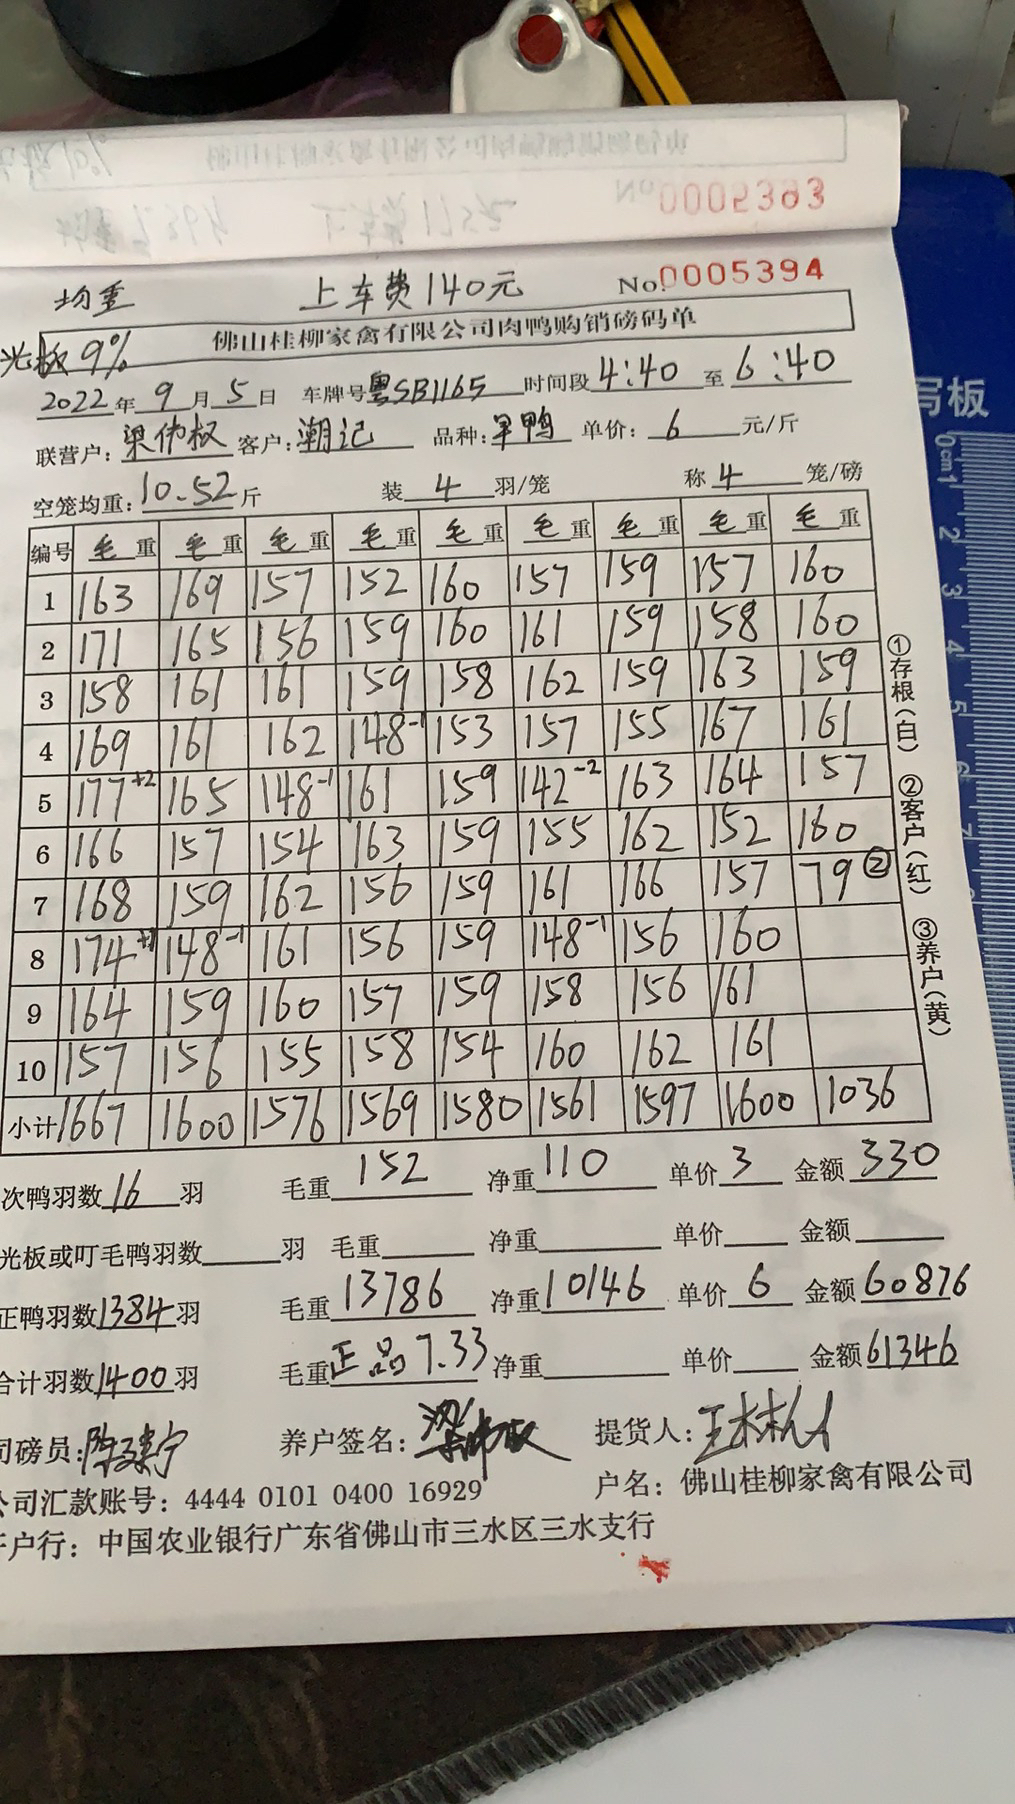 No 0005393
均重 上车费140元 No.0005394
光板9% 佛山桂柳家禽有限公司肉鸭购销磅码单
2022年9月5日 车牌号粤SB1165 时间段4:40至6:40
联营户:梁伟权 客户:潮记 品种:旱鸭 单价:6元/斤
空笼均重:10.52斤 装4羽/笼 称4笼/磅
编号 毛重 毛重 毛重 毛重 毛重 毛重 毛重 毛重 毛重
1 163 169 157 152 160 157 159 157 160
2 171 165 156 159 160 161 159 158 160
3 158 161 161 159 158 162 159 163 159
4 169 161 162 148-1 153 157 155 167 161
5 177+2 165 148-1 161 159 142-2 163 164 157
6 166 157 154 163 159 155 162 152 160
7 168 159 162 156 159 161 166 157 79②
8 174+1 148-1 161 156 159 148-1 156 160
9 164 159 160 157 159 158 156 161
10 157 156 155 158 154 160 162 161
小计 1667 1600 1576 1569 1580 1561 1597 1600 1036
①存根(白) ②客户(红) ③养户(黄)
次鸭羽数16羽 毛重152 净重110 单价3 金额330
光板或叮毛鸭羽数 羽 毛重 净重 单价 金额
正鸭羽数1384羽 毛重13786 净重10146 单价6 金额60876
合计羽数1400羽 毛重正品7.33 净重 单价 金额61346
司磅员: 养户签名:梁伟权 提货人:
公司汇款账号:4444 0101 0400 16929 户名:佛山桂柳家禽有限公司
开户行:中国农业银行广东省佛山市三水区三水支行
写板
0cm 1 2 3 4 5 6 7